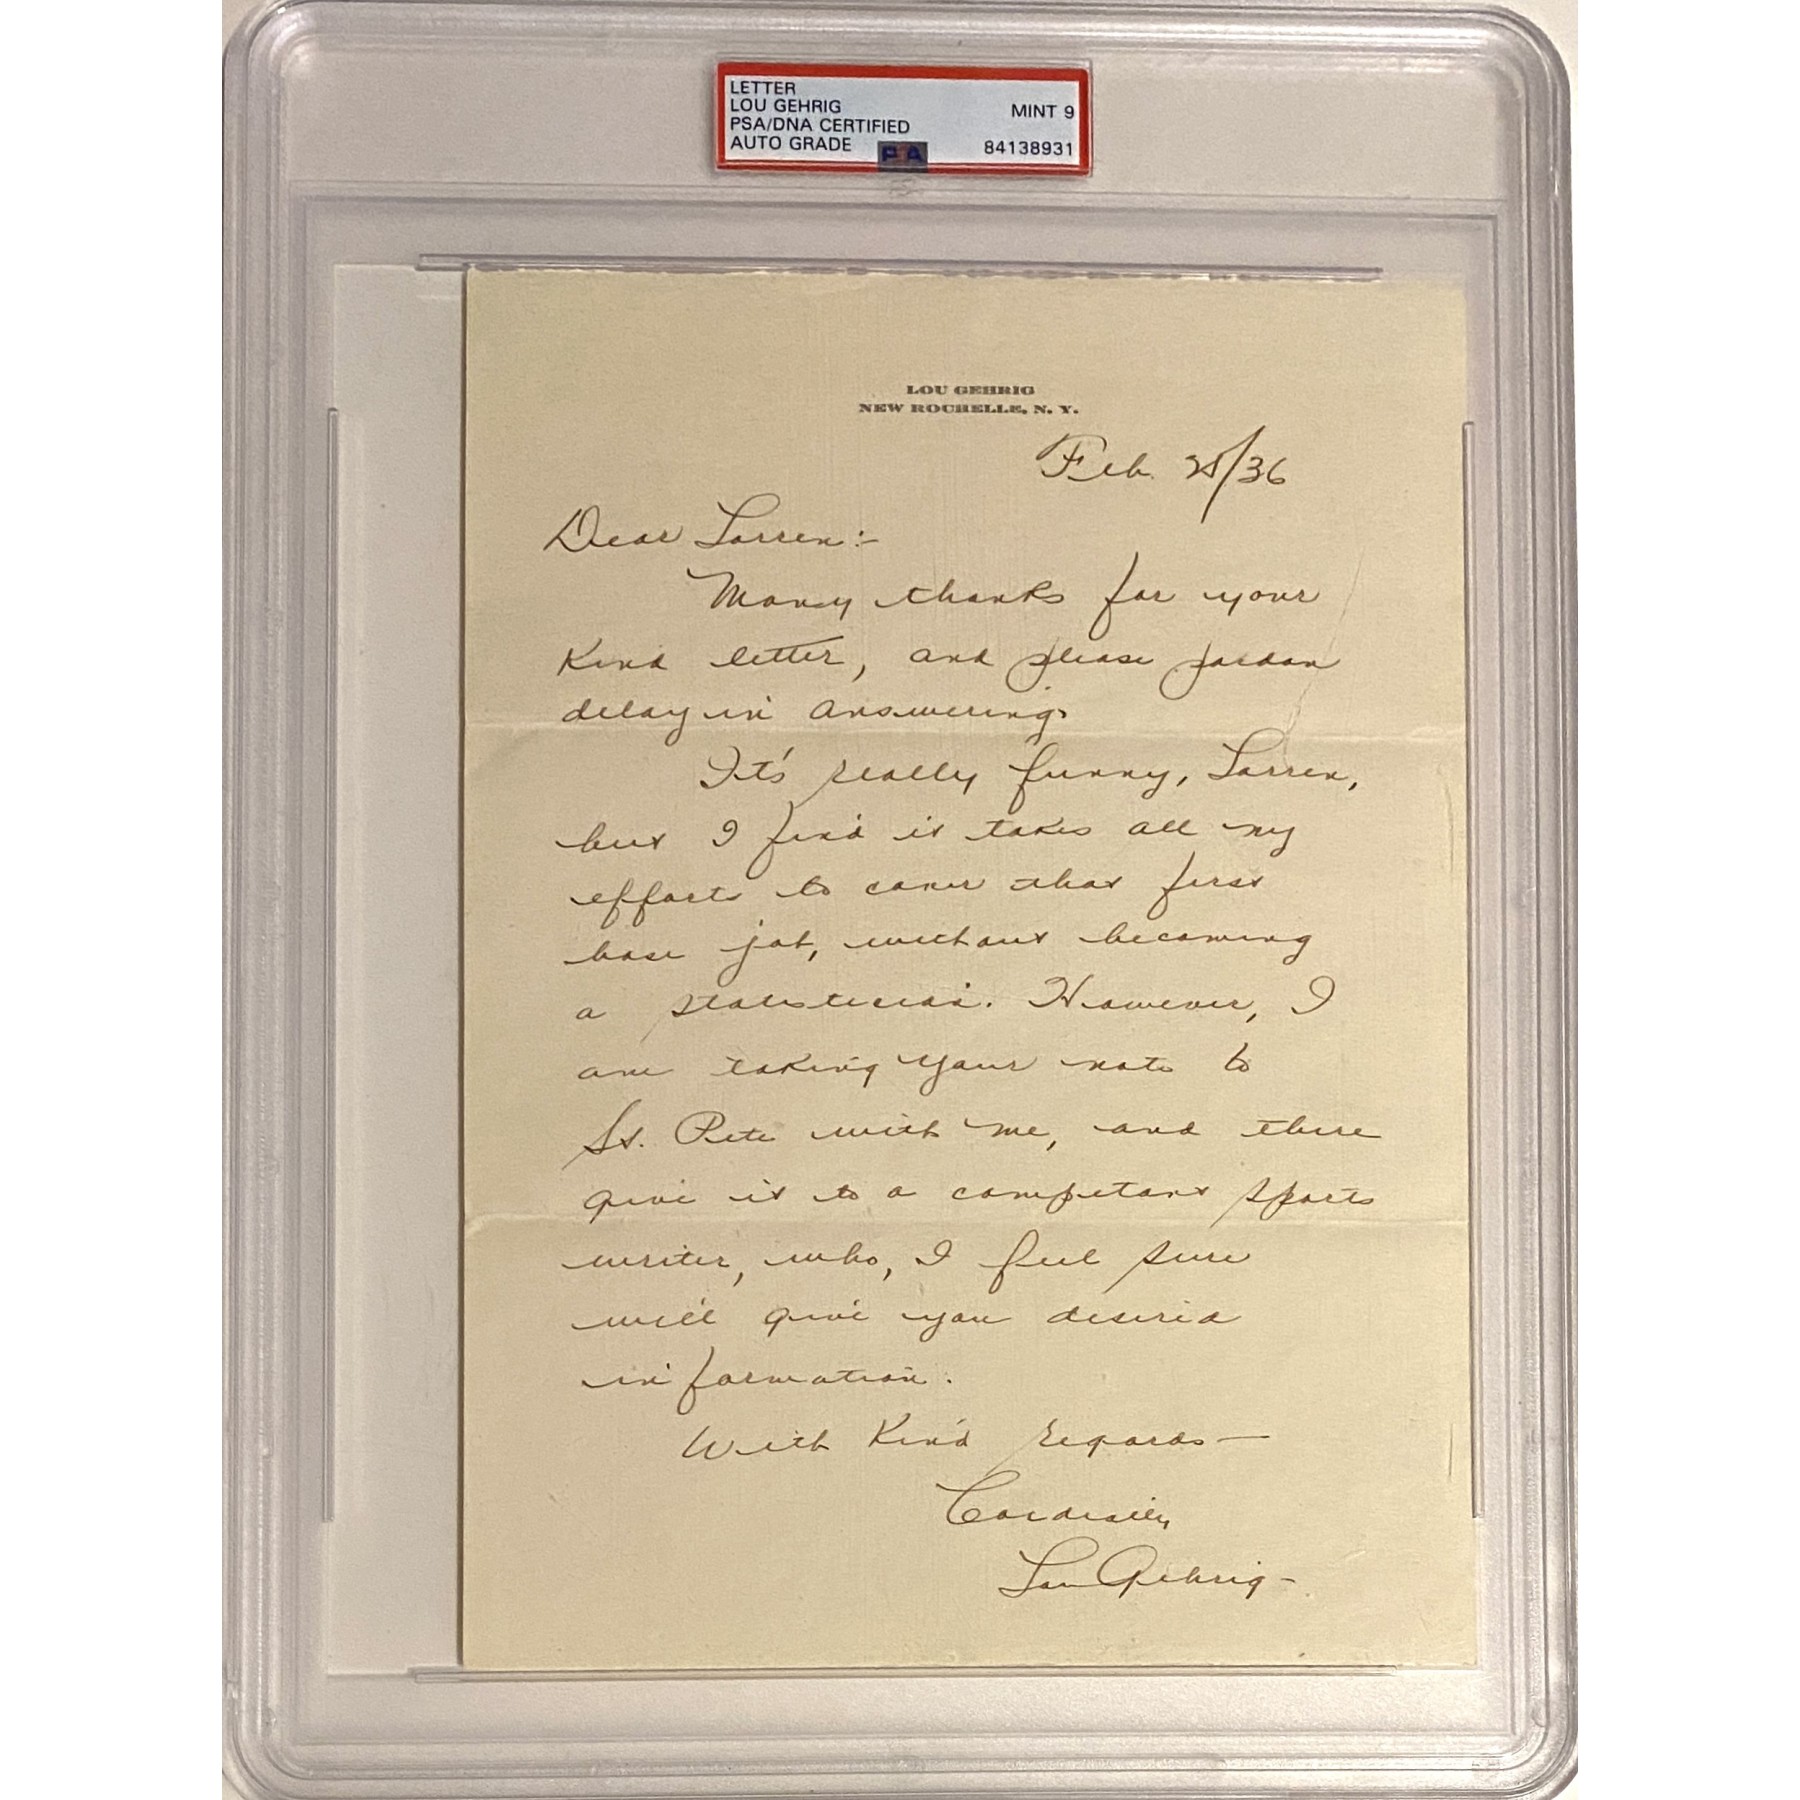 LETTER
LOU GEHRIG
PSA/DNA CERTIFIED
AUTO GRADE
MINT 9
84138931
LOU GEHRIG
NEW ROCHELLE, N. Y.
Feb. /36
Dear Lorren:-
Many thanks for your
kind letter, and please pardon
delay in answering.
It's really funny, Lorren,
but I find it takes all my
efforts to cover that first
base job, without becoming
a statistician. However, I
am taking your note to
St. Pete with me, and there
give it to a competant sports
writer, who, I feel sure
will give you desired
information.
With kind regards—
Cordially
Lou Gehrig-